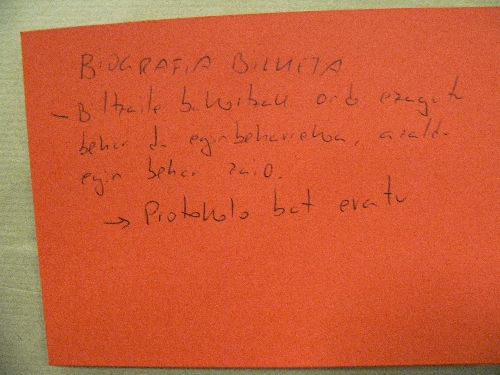 BIOGRAFIA BILKETA
- Biltzaile bakoitzak ondo ezagutu
behar du eginbeharrekoa, azaldu
egin behar zaio.
→ Protokolo bat eratu